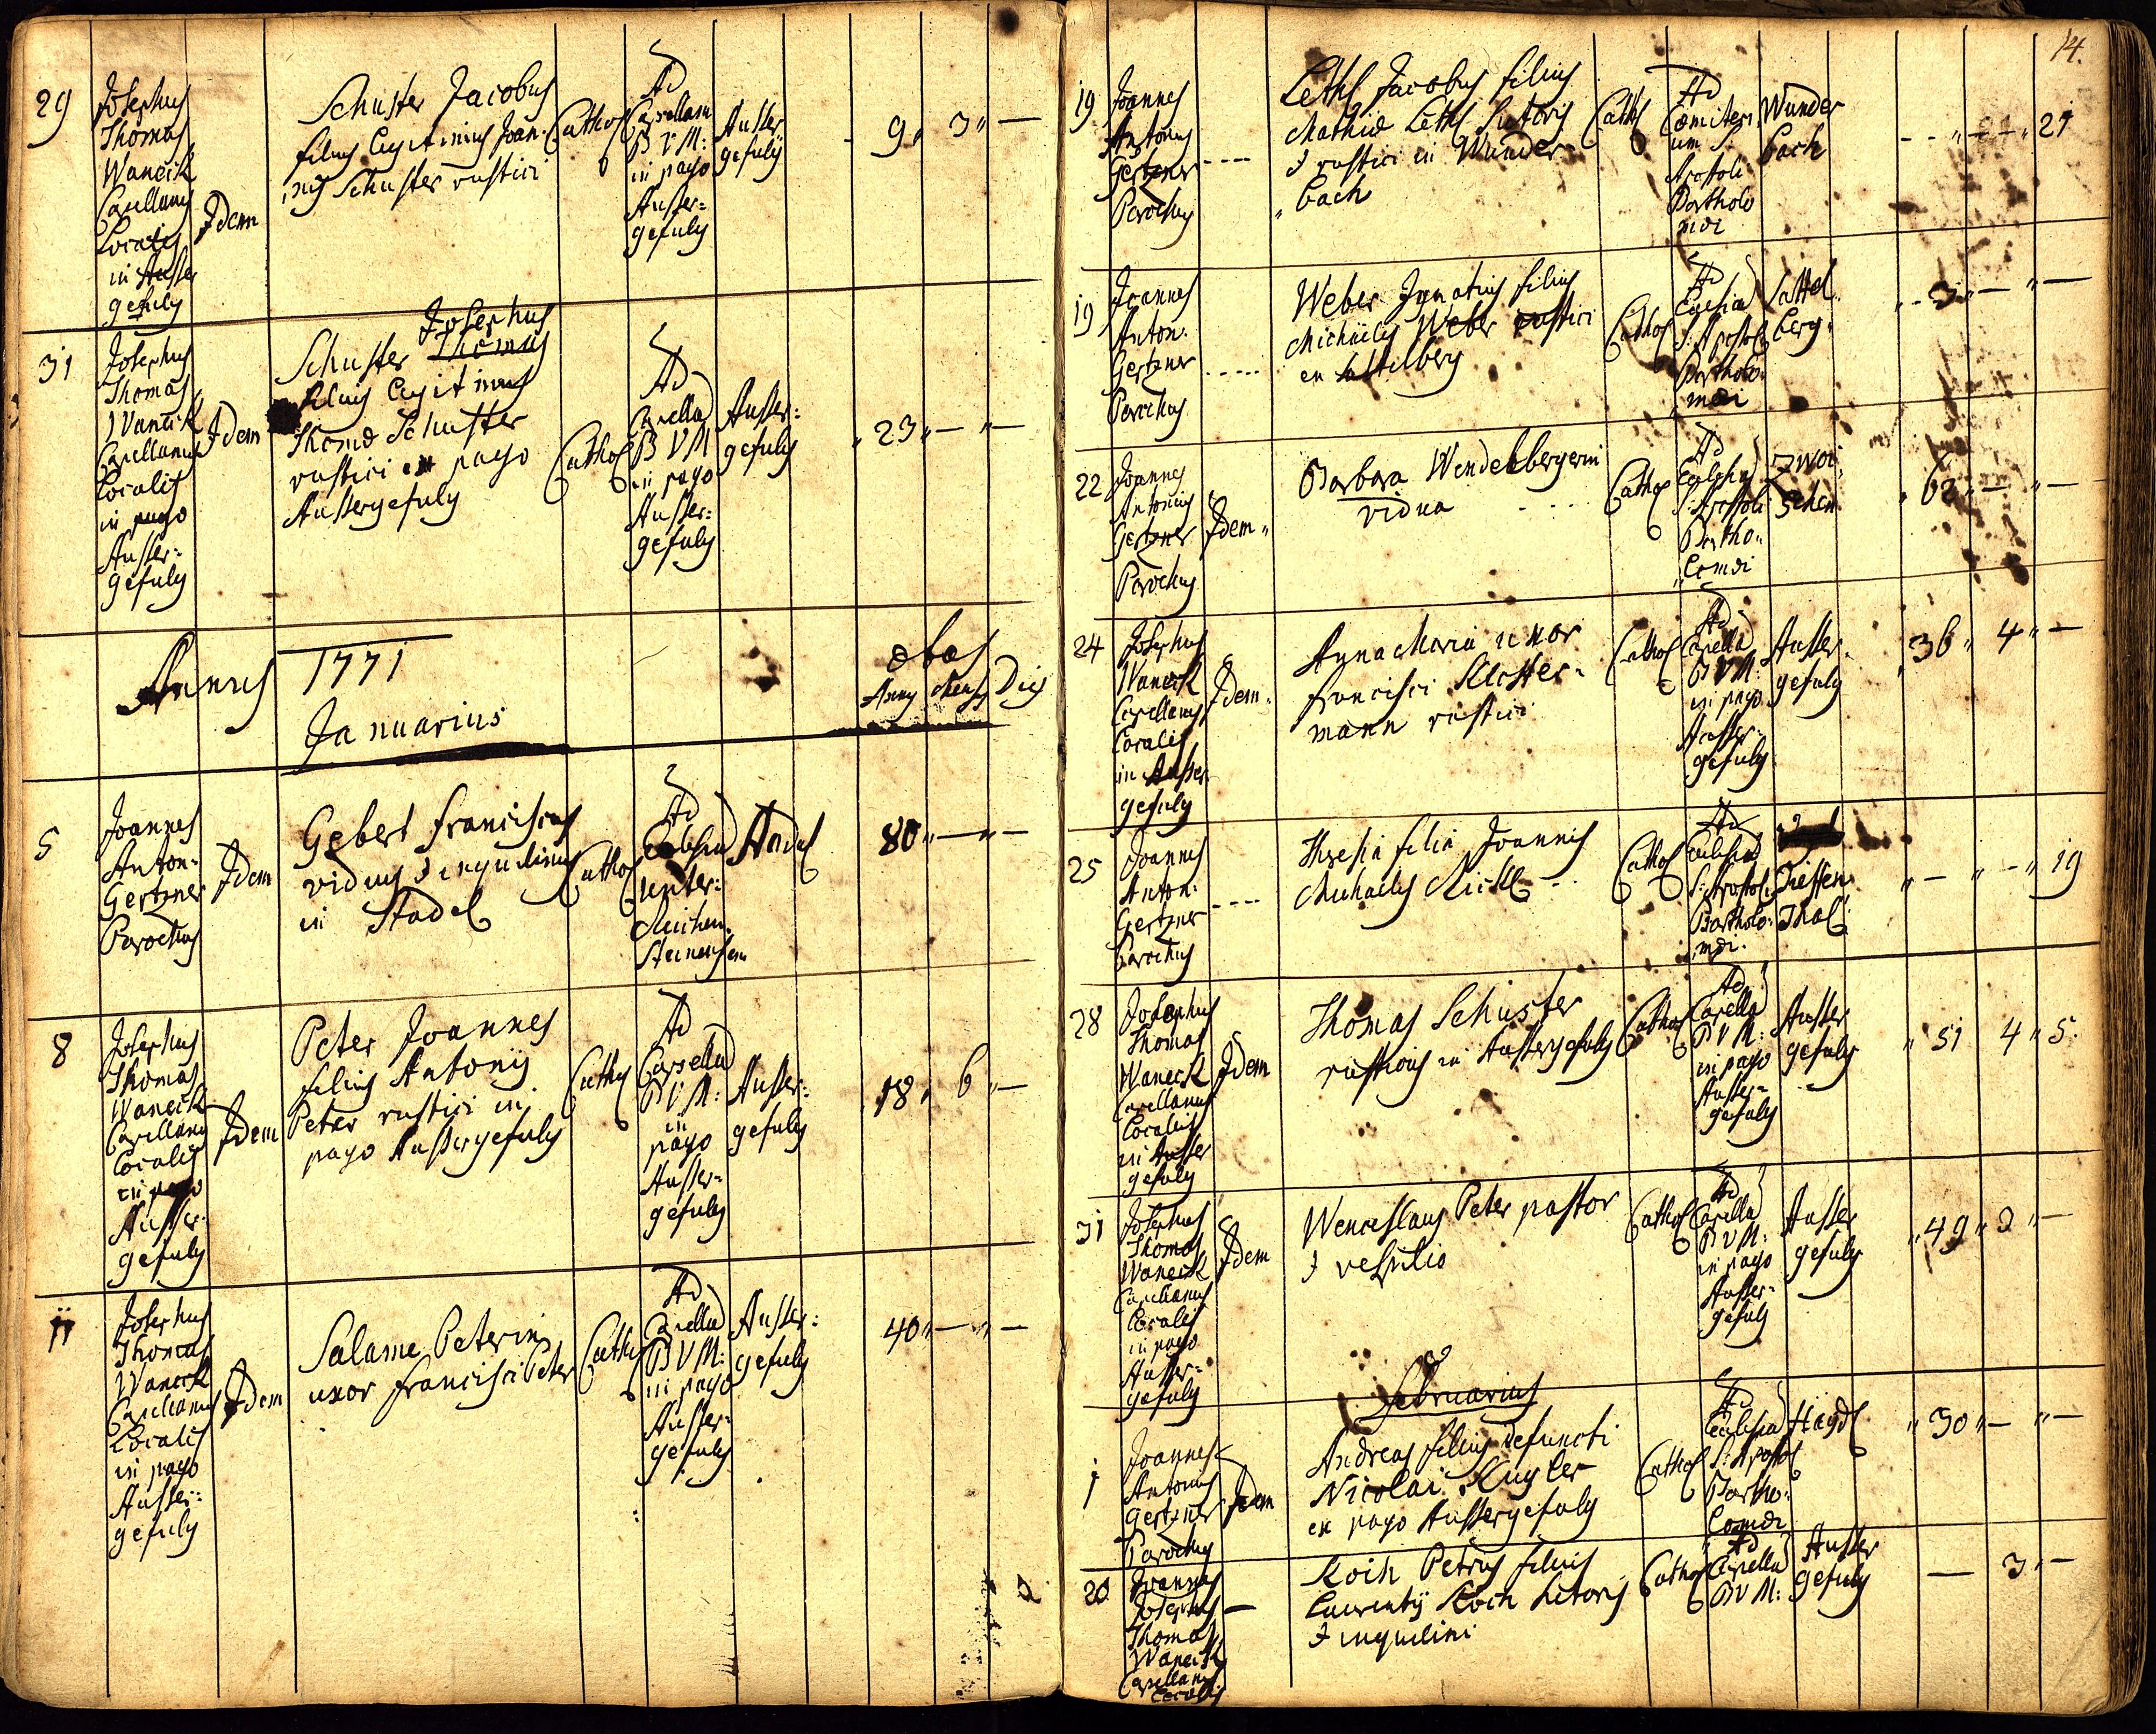 29
Josephus
Thomas
Wanėck
Capellanus
Localis
in Ausser
gefuly
Idem
Schuster Jacobus
filius legitimus Joan-
nis Schuster rustici
Cathol
Ad
Capellam
B V M:
in pago
Ausser=
gefuly
Ausser
gefuly
9 " 3 " —
31
Josephus
Thomas
Waneck
Capellanus
Localis
in pago
Ausser=
gefuly
Idem
Josephus
Schuster Thomas
filius legitimus
Thomæ Schuster
rustici in pago
Aussergefuly
Cathol
Ad
Capellā
B V M
in pago
Ausser=
gefuly
Ausser:
gefuly
" 23 " — " —
Annus 1771
Januarius
Annus Menses Dies
5
Joannes
Anton:
Gertner
Parochus
Idem
Gebert Franciscus
viduus & inquilinus
in Stadel
Cathol
Ad
Ecclesiā
Unter=
Reichen-
steinensem
Stadl
80 " — " —
8
Josephus
Thomas
Waneck
Capellanus
Localis
in pago
Ausser-
gefuly
Idem
Peter Joannes
filius Antonij
Peter rustici in
pago Aussergefuly
Cathol
Ad
Capellā
B V M:
in
pago
Ausser=
gefuly
Ausser:
gefuly
18 " 6 " —
11
Josephus
Thomas
Waneck
Capellanus
Localis
in pago
Ausser=
gefuly
Idem
Salame Peterin
uxor Francisci Peter
Cathol
Ad
Capellā
B V M:
in pago
Ausser=
gefuly
Ausser:
gefuly
40 " — " —
14.
19
Joannes
Antonius
Gertner
Parochus
Leths Jacobus filius
Mathiæ Leths sutoris
& rustici in Wunder=
bach
Cathol
Ad
Cœmiteri
um S.
Apostoli
Bartholo
mæi
Wunder
bach
21
19
Joannes
Anton:
Gertner
Parochus
Weber Ignatius filius
Michaelis Weber rustici
ex Sattelberg
Cathol
Ad
Ecclesiā
S: Apostoli
Bartholo=
mæi
Sattel
berg
" 3 " — " —
22
Joannes
Antonius
Gertner
Parochus
Idem
Barbara Wendelbergerin
vidua
Cathol
Ad
Ecclesiā
S: Apostoli
Bartho=
lomæi
Zwoi
schen
" 62 " — " —
24
Josephus
Waneck
Capellanus
Localis
in Ausser
gefuly
Idem
Anna Maria uxor
Francisci Kloster=
mann rustici
Cathol
Ad
Capellā
B V M:
in pago
Ausser=
gefuly
Ausser
gefuly
" 36 " 4 " —
25
Joannes
Anton:
Gertner
Parochus
Theresia filia Joannis
Michaelis
Cathol
Ad
Ecclesiā
S: Apostoli
Bartholo=
mæi
Tieffen
Thal
" — " — " 19
28
Josephus
Thomas
Waneck
Capellanus
Localis
in Ausser
gefuly
Idem
Thomas Schuster
rusticus in Aussergefuly
Cathol
Ad
Capellā
B V M:
in pago
Ausser=
gefuly
Ausser
gefuly
" 51 4 " 5
31
Josephus
Thomas
Waneck
Capellanus
Localis
in pago
Ausser=
gefuly
Idem
Wenceslaus Peter pastor
& vespilio
Cathol
Ad
Capellā
B V M:
in pago
Ausser=
gefuly
Ausser
gefuly
" 49 " 2 " —
Februarius
1
Joannes
Antonius
Gertner
Parochus
Idem
Andreas filius defuncti
Nicolai Kugler
ex pago Aussergefuly
Cathol
Ad
Ecclesiā
S: Apostoli
Bartho=
lomæi
Haydl
" 30 " — " —
20
Joannes
Josephus
Thomas
Waneck
Capellanus
Localis
Koch Petrus filius
Laurentij Koch sutoris
& inquilini
Cathol
Ad
Capellā
B V M:
Ausser
gefuly
— 3 " —